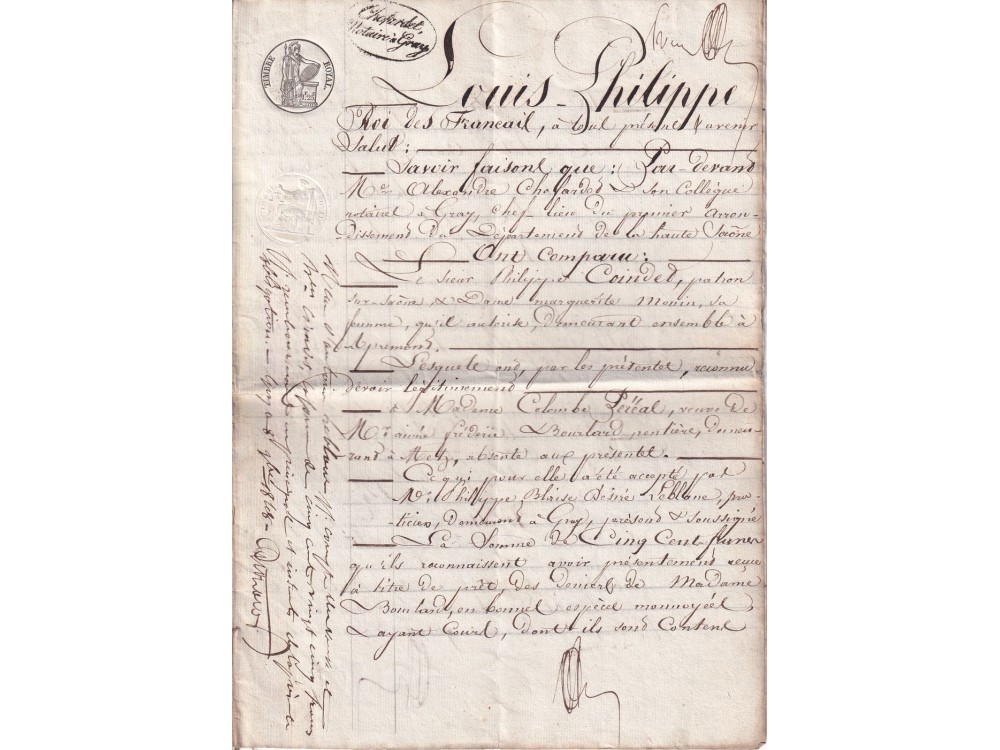 Chofardet,
Notaire à Gray
TIMBRE ROYAL
Louis-Philippe
Roi des Francais, à tous présens & avenir
Salut:
Savoir faisons que: Par-devant
Mes Alexandre Chofardet & son Collègue
notaires à Gray, chef-lieu du premier arron-
dissement du Département de la haute Saône
Ont Comparu:
Le sieur Philippe Coindet, patron
sur-Saône, & Dame marguerite Monin, sa
femme, qu'il autorise, demeurant ensemble à
Apremont.
Lesquels ont, par les présentes, reconnu
devoir légitimement
à Madame Colombe veuve de
Mr aimé frédéric Bourlard, rentière, demeu-
rant à Metz, absente aux présentes.
Ce qui pour elle a été accepté par
Mr Philippe, Blaise Désiré Leblanc, pra-
ticien, demeurant à Gray, présent & soussigné
La Somme de Cinq Cent francs
qu'ils reconnaissent avoir présentement reçue
à titre de prêt, des deniers de Madame
Bourlard, en bonnes espèces monnoyées
& ayant Cours, dont ils sont Contens
Leblanc
de cinq cent vingt cinq francs
principal et
obligation. Gray 1848